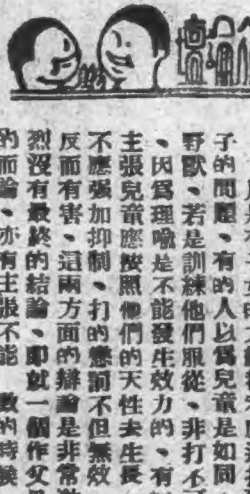 子的問題、有的人以爲兒童是如同
野獸、若是訓練他們服從、非打不
、因爲理喻是不能發生效力的、有
主張兒童應按照他們的天性去生長
不應强加抑制、打的懲罰不但無效
反而有害、這兩方面的辯論是非常激
烈沒有最終的結論、即就一個作父
的而論、亦有主張不能 敎的時候